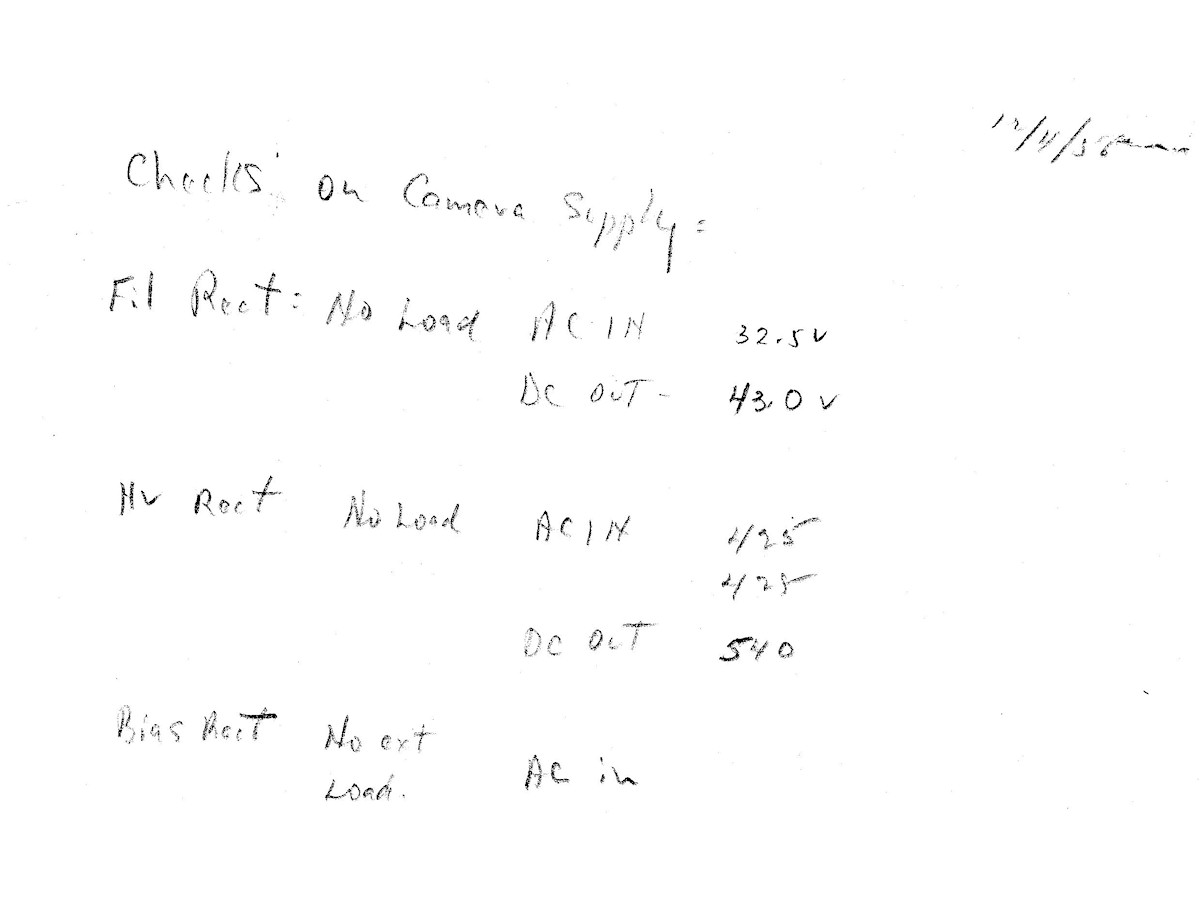 12/4/58
Checks on Camera Supply =
Fil Rect: No Load AC IN 32.5 v
DC OUT - 43.0 v
HV Rect No Load AC IN 425
425
DC OUT 540
Bias Rect No ext
Load. AC in